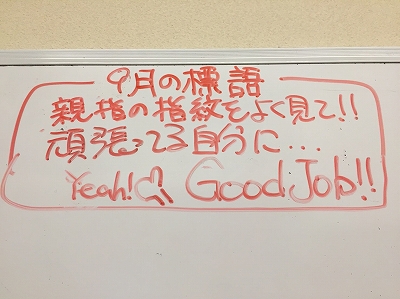 9月の標語
親指の指紋をよく見て!!
頑張ってる自分に...
Yeah!♡ Good Job!!